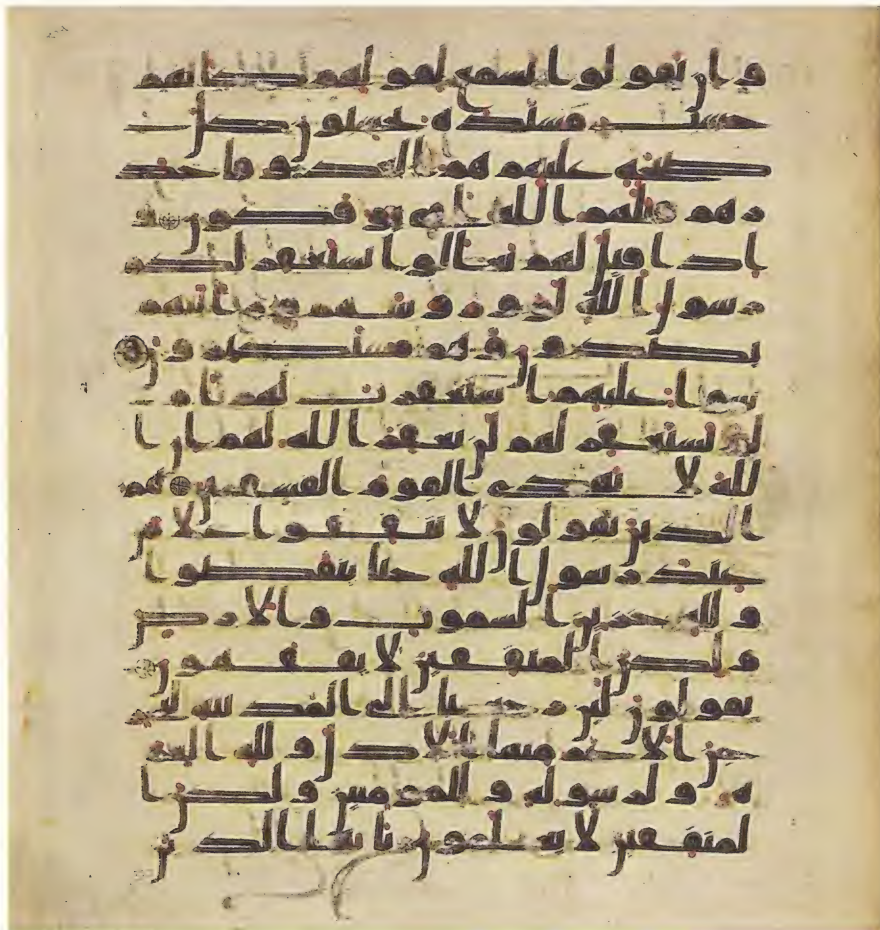 وان يقولوا تسمع لقولهم كانهم
خشب مسندة يحسبون كل
صيحة عليهم هم العدو فاحذ
رهم قتلهم الله انى يوفكون و
اذا قيل لهم تعالوا يستغفر لكم
رسول الله لووا روسهم ورايتهم
يصدون وهم مستكبرون
سوا عليهم استغفرت لهم ام
لم تستغفر لهم لن يغفر الله لهم ان ا
لله لا يهدي القوم الفسقين هم
الذين يقولون لا تنفقوا على من
عند رسول الله حتى ينفضوا
ولله خزين السموت والارض
ولكن المنفقين لا يفقهون
يقولون لين رجعنا الى المدينة ليخر
جن الاعز منها الاذل ولله العز
ة ولرسوله وللمومنين ولكن ا
لمنفقين لا يعلمون يايها الذين